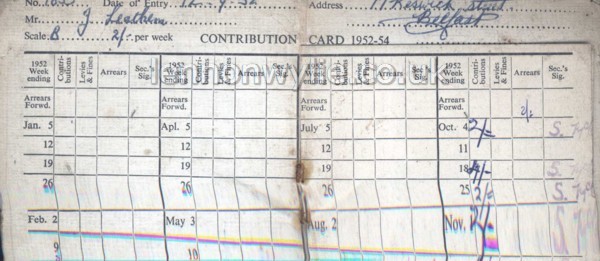 No. Date of Entry 12-9-52 Address 11 Keswick Street
Mr. J. Leathem Belfast
Scale B 2/- per week CONTRIBUTION CARD 1952-54
1952 Week ending Contri-butions Levies & Fines Arrears Sec.'s Sig. 1952 Week ending Contri-butions Levies & Fines Arrears Sec.'s Sig. 1952 Week ending Contri-butions Levies & Fines Arrears Sec.'s Sig. 1952 Week ending Contri-butions Levies & Fines Arrears Sec.'s Sig.
Arrears Forwd. Arrears Forwd. Arrears Forwd. Arrears Forwd. 2/-
Jan. 5 Apl. 5 July 5 Oct. 4 2/-
12 12 12 11
19 19 19 18 4/-
26 26 26 25 2/-
Feb. 2 May 3 Aug. 2 Nov. 2/-
9 10